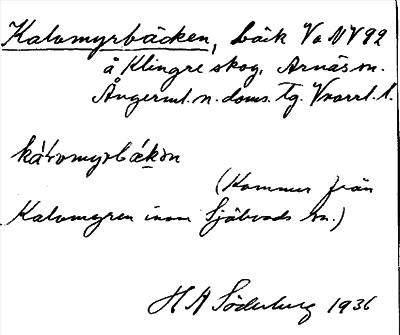 Kalvmyrbäcken, bäck V o NV 92
å Klingre skog, Arnäs sn.
Ångerml. n. doms. tg. Vnorrl. l.
(Kommer från
Kalvmyren inom Själevads sn.)
H A Söderberg 1936